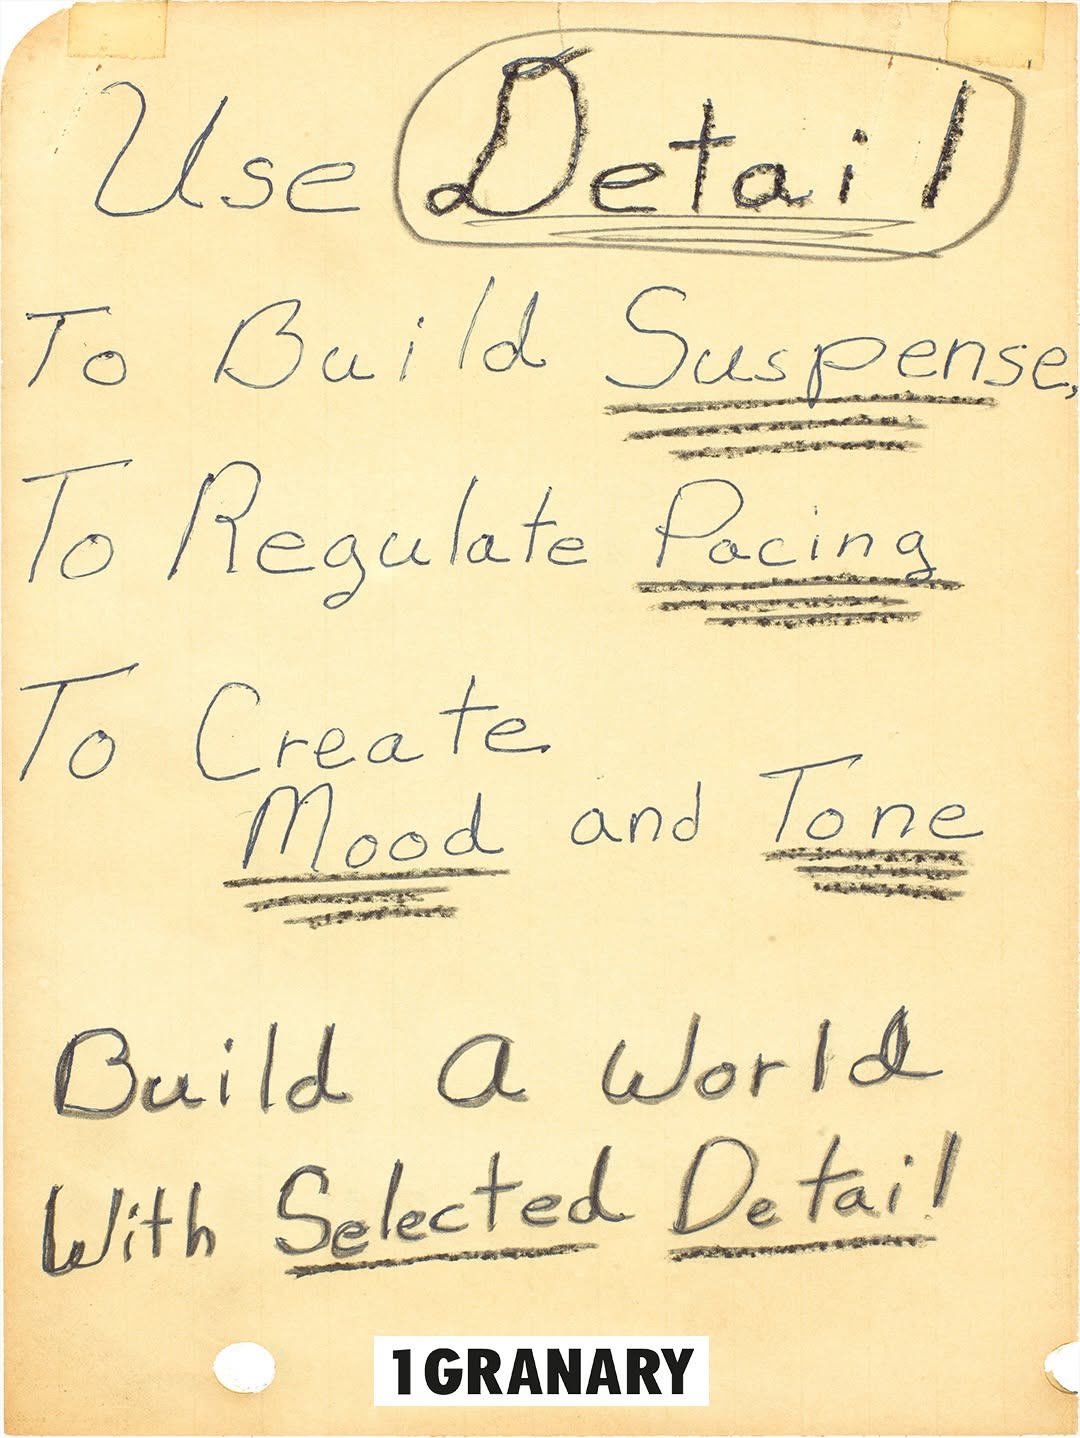 Use Detail
To Build Suspense,
To Regulate Pacing
To Create
Mood and Tone
Build A World
With Selected Detail
1 GRANARY